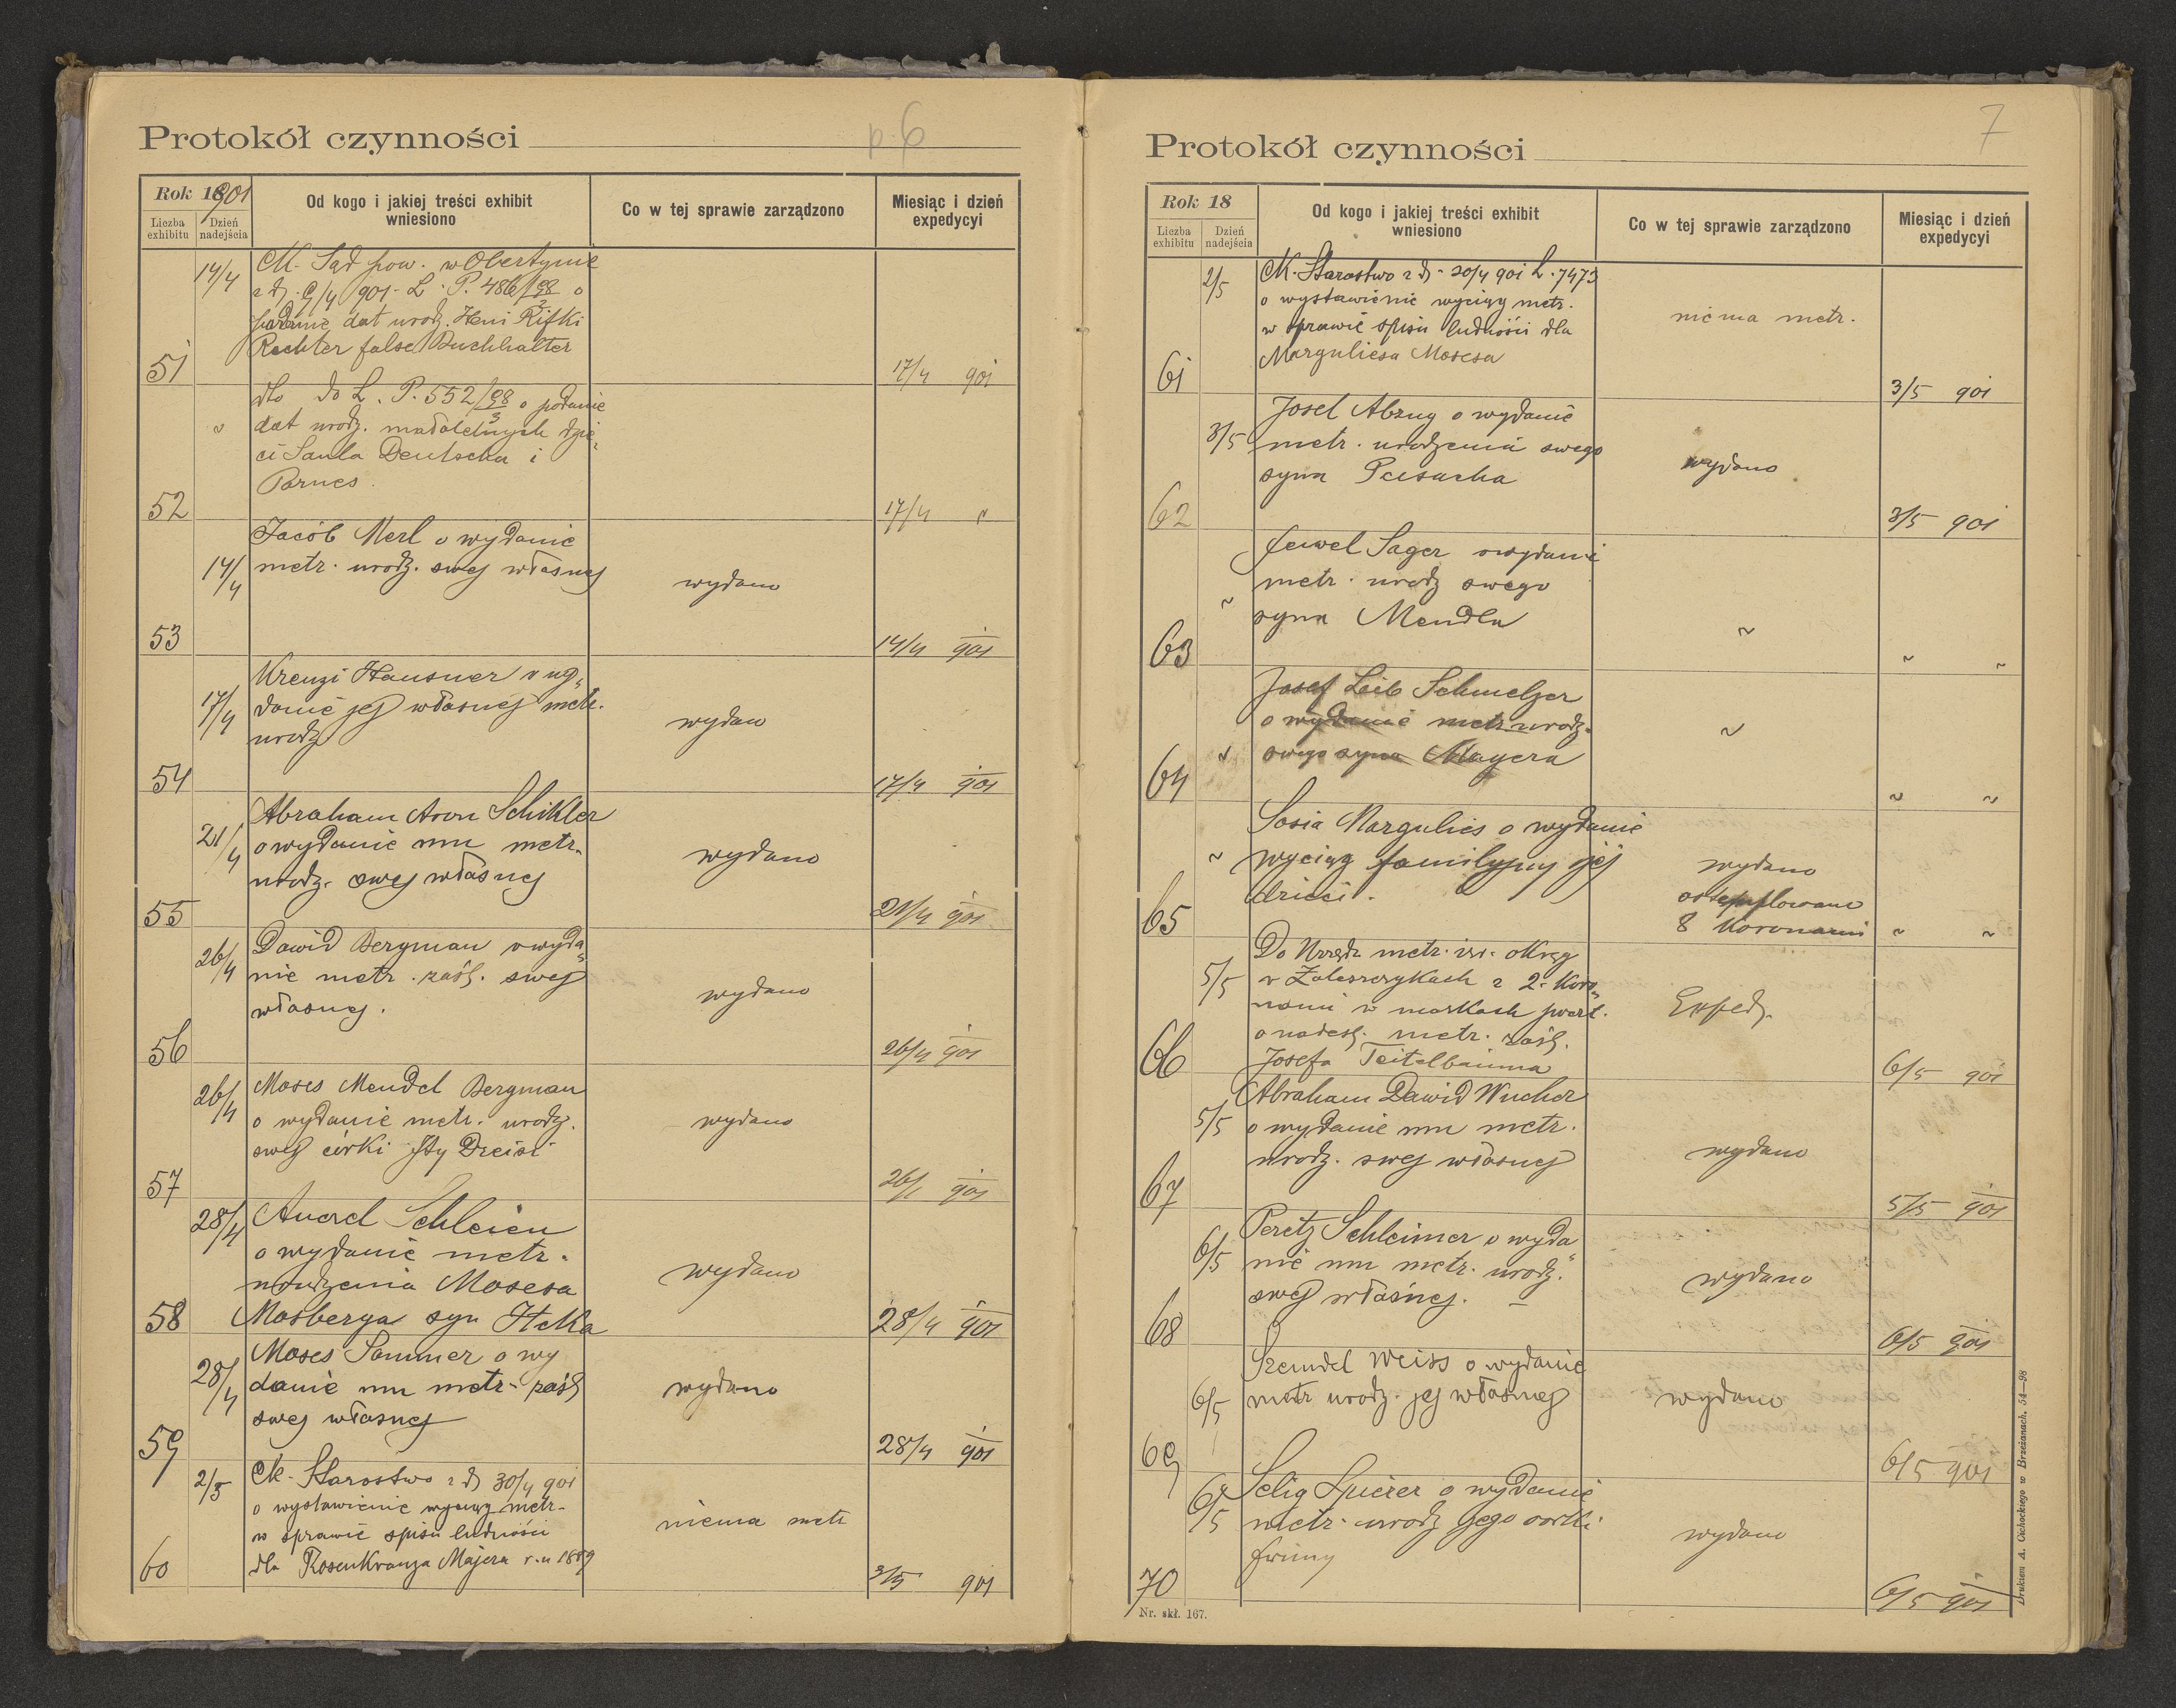 Protokół czynności
p. 6
Rok 1901
Liczba exhibitu
Dzień nadejścia
Od kogo i jakiej treści exhibit wniesiono
Co w tej sprawie zarządzono
Miesiąc i dzień expedycyi
14/4
CK. Sąd pow. w Obertynie
z d. 9/4 901 L. P. 486/98 o
podanie dat urodz. Heni Rifki
Rechter false Buchhalter
51
17/4 901
dto do L. P. 552/98 o podanie
dat urodz. małoletnych dzie-
ci Saula Deutscha i
Parnes
52
17/4 "
14/4
Jacób Merl o wydanie
metr. urodz. swej własnej
wydano
53
14/4 901
17/4
Kreuzi Hausner o wy-
danie jej własnej metr.
urodz
wydano
54
17/4 901
21/4
Abraham Aron Schikler
o wydanie mu metr.
urodz. swej własnej
wydano
55
21/4 901
26/4
Dawid Bergman o wyda-
nie metr. zaśl. swej
własnej.
wydano
56
26/4 901
26/4
Moses Mendel Bergman
o wydanie metr. urodz.
swej córki Ity Dreisi
wydano
57
26/4 901
28/4
Schleien
o wydanie metr.
urodzenia Mosesa
Mosberga syn Itcka
wydano
58
28/4 901
28/4
Moses Sommer o wy
danie mu metr. zaśl
swej własnej
wydano
59
28/4 901
2/5
CK. Starostwo z d 30/4 901
o wystawienie wyciąg metr.
w sprawie spisu ludności
dla Rosenkranza Majera r. u 1889
niema metr
60
3/5 901
Protokół czynności
7
Rok 18
Liczba exhibitu
Dzień nadejścia
Od kogo i jakiej treści exhibit wniesiono
Co w tej sprawie zarządzono
Miesiąc i dzień expedycyi
2/5
CK. Starostwo z d. 30/4 901 L. 7473
o wystawienie wyciąg metr.
w sprawie spisu ludności dla
Marguliesa Mosesa
niema metr.
61
3/5 901
3/5
Josel Abzug o wydanie
metr. urodzenia swego
syna Peisacha
wydano
62
3/5 901
"
Sager o wydanie
metr. urodz swego
syna Mendla
"
63
" "
"
Josef Leib Schmelzer
o wydanie metr urodz.
swego syna Mayera
"
64
" "
"
Sosia Margulies o wydanie
wyciąg familyjny jej
dzieci.
wydano
ostemplowano
8 Koronami
65
" "
5/5
Do Urzędu metr. izr. okręg
w Zaleszczykach z 2. Koro-
nami w markach poczt.
o nadesł. metr. zaśl.
Josefa Teitelbauma
Exped.
66
6/5 901
5/5
Abraham Dawid Wucher
o wydanie mu metr.
urodz. swej własnej
wydano
67
5/5 901
6/5
Peretz Schleimer o wyda
nie mu metr. urodz.
swej własnej.
wydano
68
6/5 901
6/5
Szeindel Weiss o wydanie
metr urodz. jej własnej
wydano
69
6/5 901
6/5
Selig Spierer o wydanie
metr. urodz jego córki
wydano
70
6/5 901
Nr. skł. 167.
Drukiem A. Cichockiego w Brzeżanach. 54—98